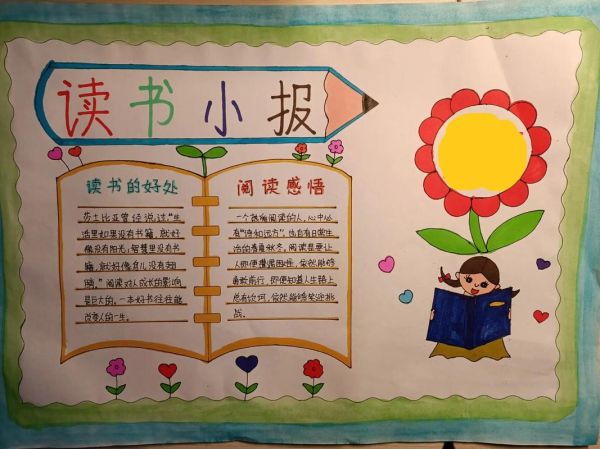 读书小报
读书的好处
莎士比亚曾经说过:“生
活里如果没有书籍,就好
像没有阳光,智慧里没有书
籍,就好像鸟儿没有翅
膀。”阅读对人成长的影响
是巨大的,一本好书往往能
改变人的一生。
阅读感悟
一个热爱阅读的人,心中必
有“诗和远方”,也自有日常生
活的春夏秋冬,阅读是要让
人即便遭遇困难,依然能够
勇敢前行,即便知道人生路上
总有坎坷,依然能够笑迎挑
战。